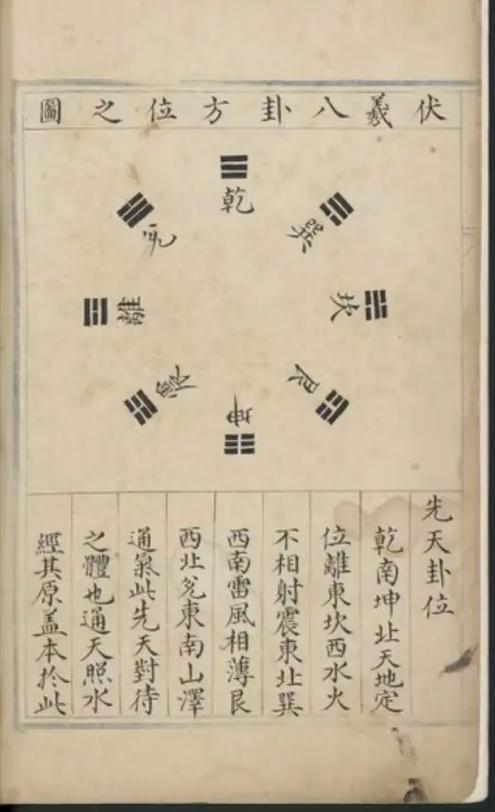 伏羲八卦方位之圖
乾
兌
巽
離
坎
震
艮
坤
先天卦位
乾南坤北天地定
位離東坎西水火
不相射震東北巽
西南雷風相薄艮
西北兌東南山澤
通氣此先天對待
之體也通天照水
經其原盖本於此